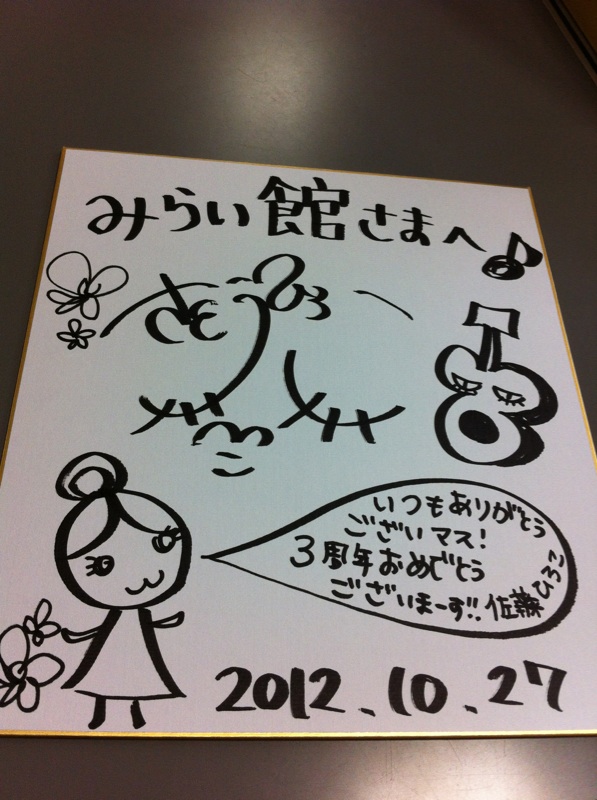 みらい館さまへ♪
さとうひろこ
いつもありがとう
ございマス!
3周年おめでとう
ございまーす!! 佐藤ひろこ
2012.10.27